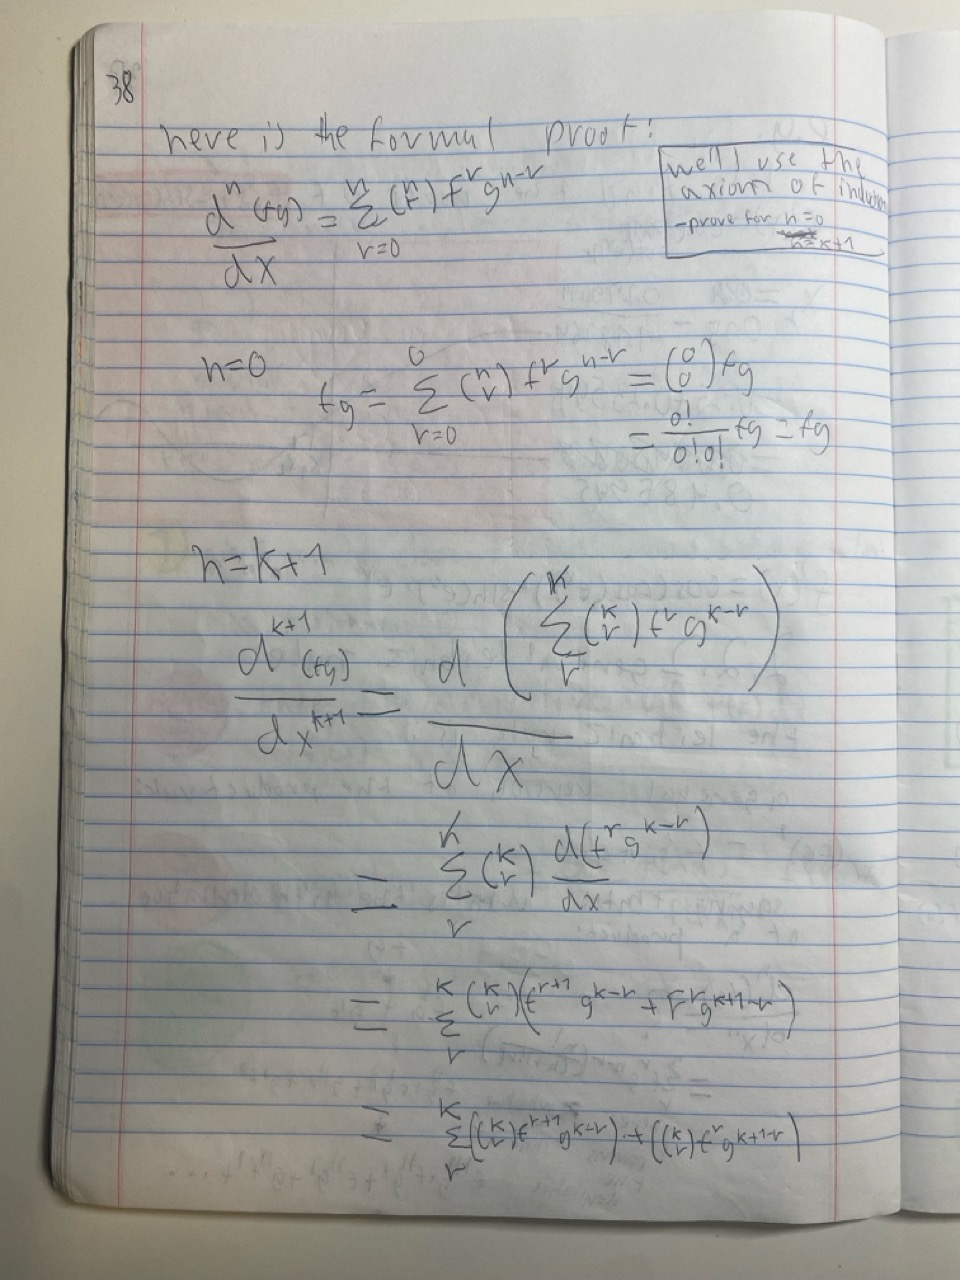 38
here is the formal proof:
we'll use the
axiom of induction
-prove for n=0
n=k+1
dⁿ(fg)/dx = Σ_{r=0}^{n} (n r) f^r g^{n-r}
n=0
fg = Σ_{r=0}^{0} (n r) f^r g^{n-r} = (0 0) fg
= 0!/0!0! fg = fg
n=k+1
d^{k+1}(fg)/dx^{k+1} = d/dx (Σ_{r}^{k} (k r) f^r g^{k-r})
= Σ_{r}^{k} (k r) d(f^r g^{k-r})/dx
= Σ_{r}^{k} (k r)(f^{r+1} g^{k-r} + f^r g^{k+1-r})
= Σ_{r}^{k} ((k r) f^{r+1} g^{k-r}) + ((k r) f^r g^{k+1-r})